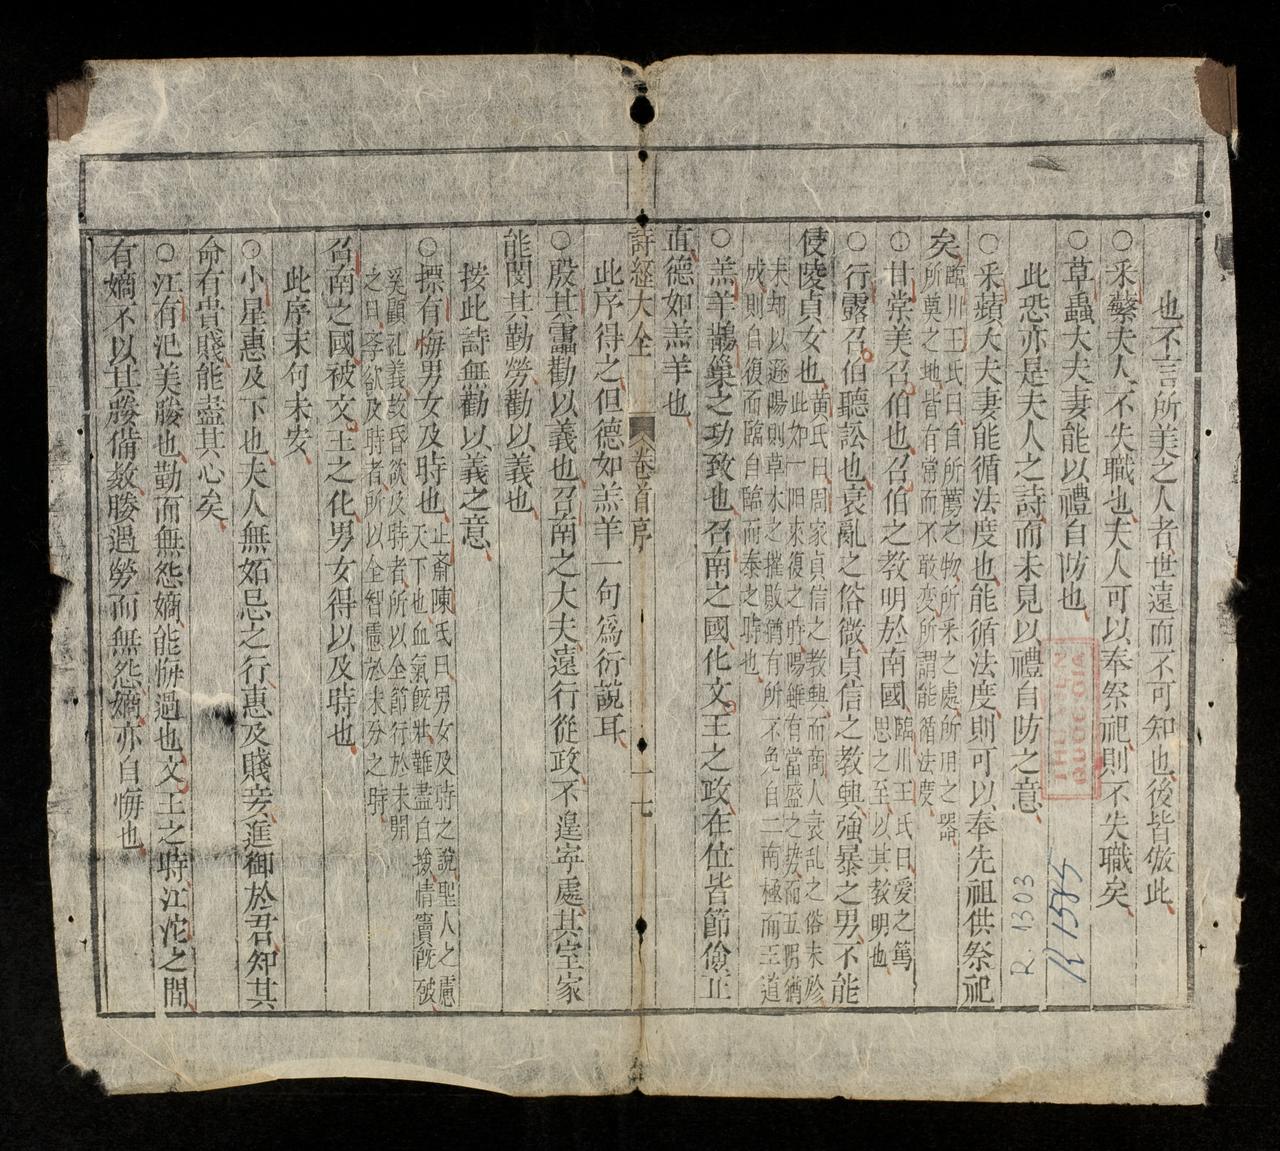 也不言所美之人者世遠而不可知也後皆倣此
○采蘩夫人不失職也夫人可以奉祭祀則不失職矣
○草蟲大夫妻能以禮自防也
此恐亦是夫人之詩而未見以禮自防之意
○采蘋大夫妻能循法度也能循法度則可以奉先祖供祭祀
矣
臨川王氏曰自所薦之物所采之處所用之器
所奠之地皆有常而不敢变所謂能循法度
○甘棠美召伯也召伯之教明於南國
臨川王氏曰愛之篤
思之至以其教明也
○行露召伯聽訟也衰亂之俗微貞信之教興強暴之男不能
侵陵貞女也
黃氏曰周家貞信之教興而商人衰乱之俗未殄
此如一阳來復之時陽雖有當盛之势而五阴猶
未却以遯陽則草木之摧敗猶有所不免自二南極而王道
成則自復而臨自臨而泰之時也
○羔羊鵲巢之功致也召南之國化文王之政在位皆節儉正
直德如羔羊也
詩經大全
卷首序
一七
此序得之但德如羔羊一句爲衍說耳
○殷其靁勸以義也召南之大夫遠行從政不遑寧處其室家
能閔其勤勞勸以義也
按此詩無勸以義之意
○摽有梅男女及時也
止齋陳氏曰男女及時之說聖人之慮
天下也血氣旣壯難盡自撿情竇旣破
奚顧礼義故昏欲及時者所以全節行於未開
之日孕欲及時者所以全智慮於未分之時
召南之國被文王之化男女得以及時也
此序末句未安
○小星惠及下也夫人無妬忌之行惠及賤妾進御於君知其
命有貴賤能盡其心矣
○江有汜美媵也勤而無怨嫡能悔過也文王之時江沱之間
有嫡不以其媵備数媵遇勞而無怨嫡亦自悔也
R. 1303
R 1585